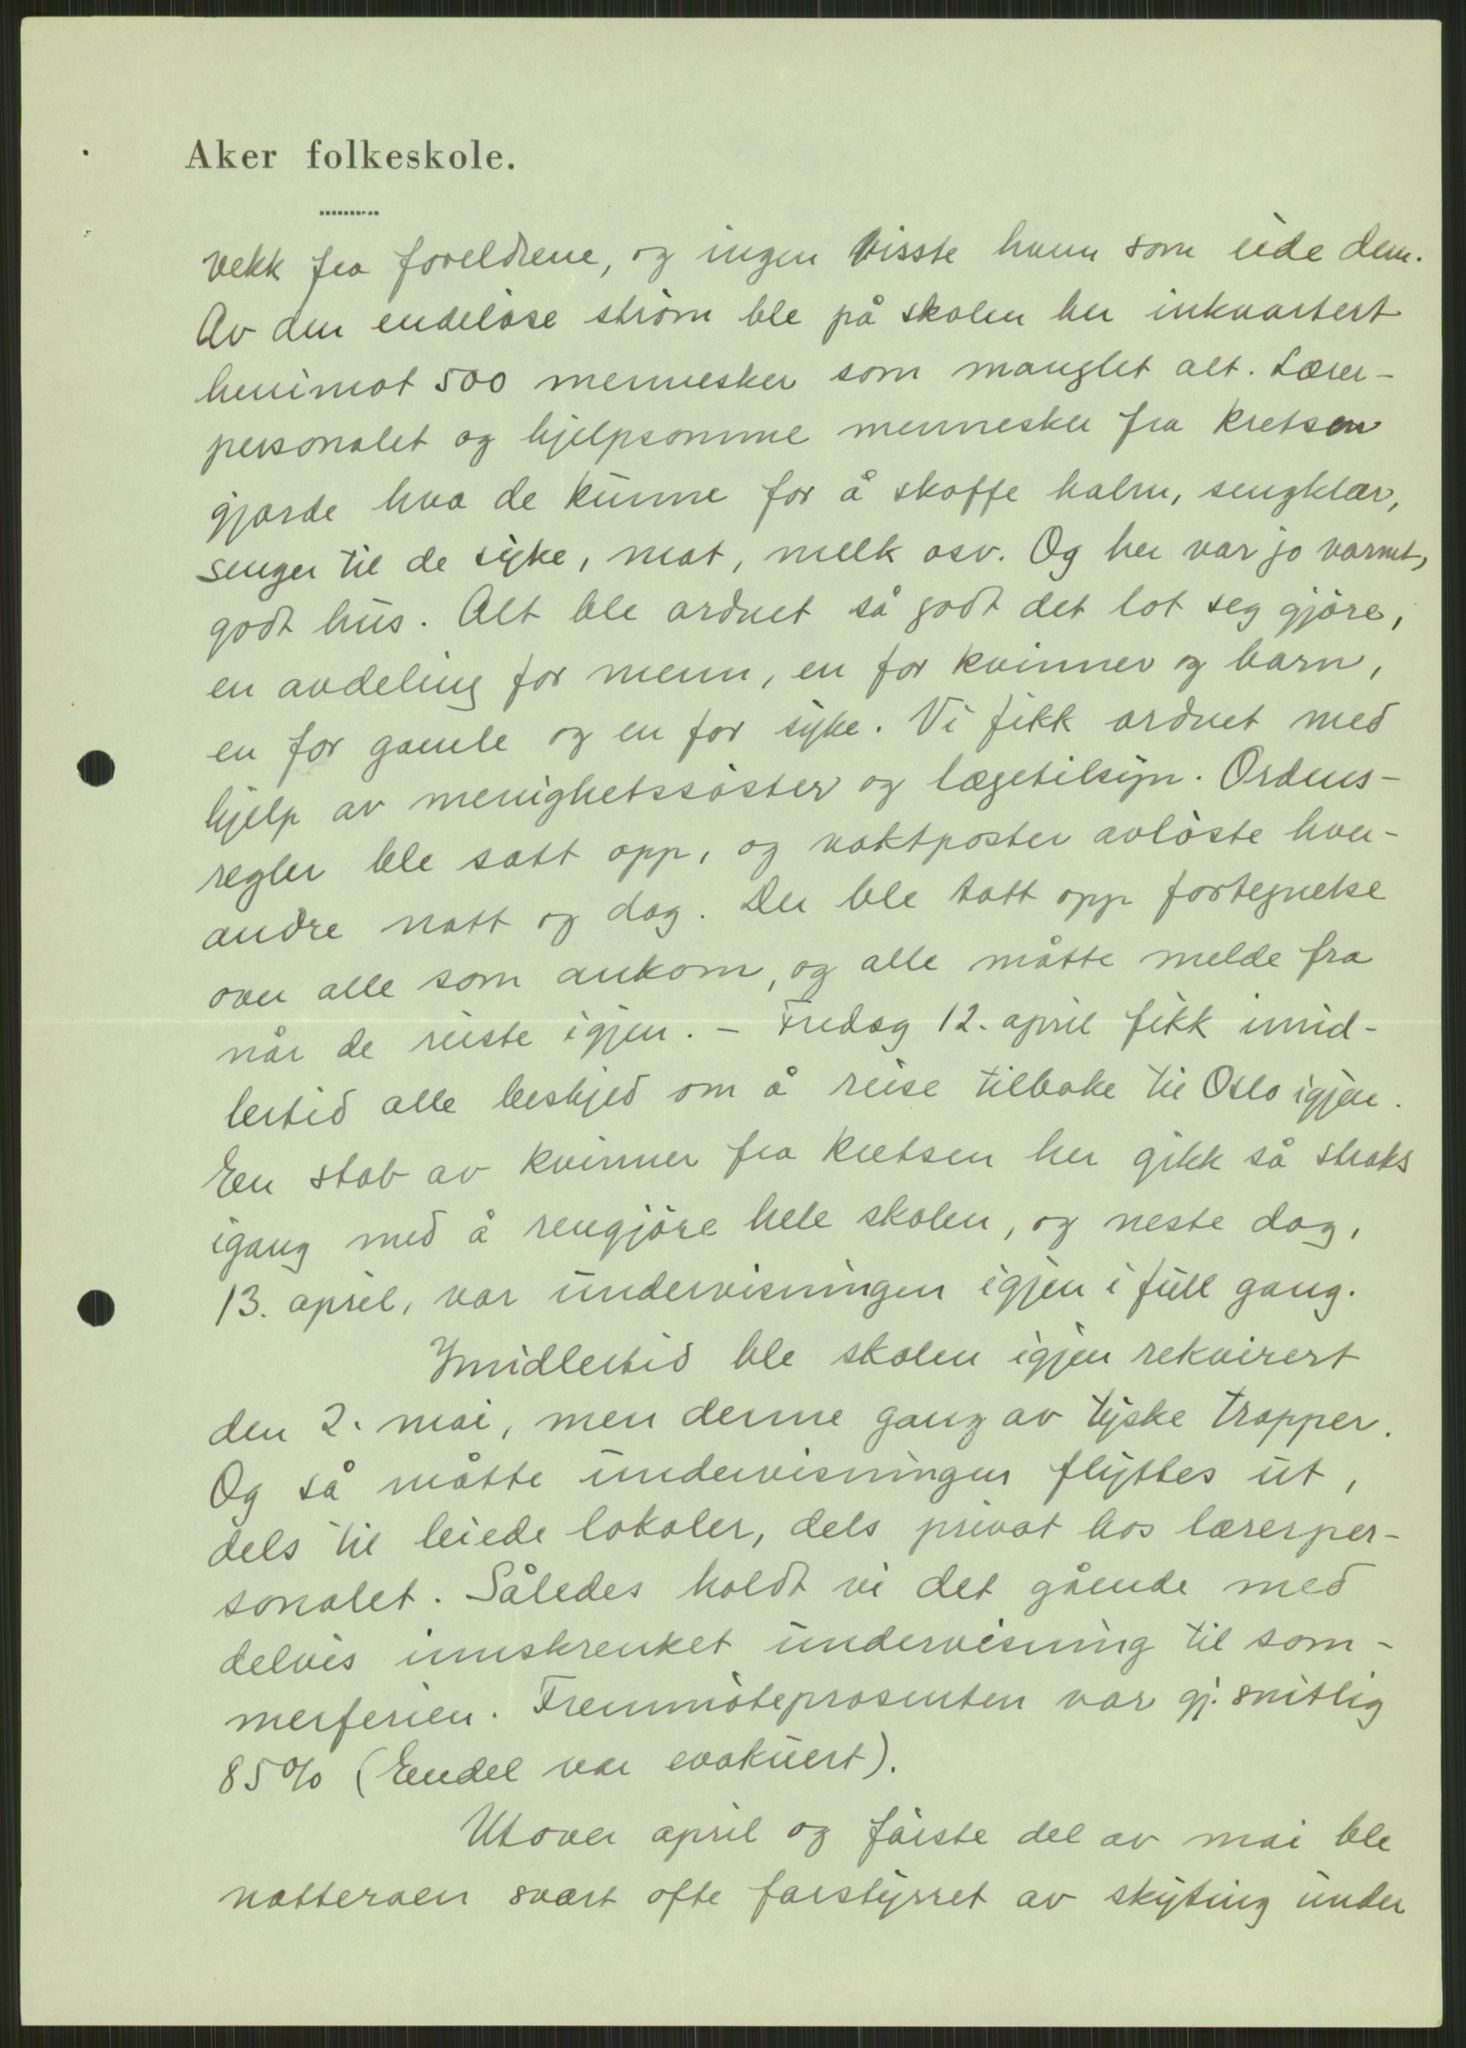 Aker folkeskole.
vekk fra foreldrene, og ingen visste hvem som eide dem.
Av den endeløse strøm ble på skolen her inkvartert
henimot 500 mennesker som manglet alt. Lærer-
personalet og hjelpsomme mennesker fra kretsen
gjorde hva de kunne for å skaffe halm, sengklær,
senger til de syke, mat, melk osv. Og her var jo varmt,
godt hus. Alt ble ordnet så godt det lot seg gjøre,
en avdeling for menn, en for kvinner og barn,
en for gamle og en for syke. Vi fikk ordnet med
hjelp av menighetssøster og lægetilsyn. Ordens-
regler ble satt opp, og vaktposter avløste hver-
andre natt og dag. Der ble tatt opp fortegnelse
over alle som ankom, og alle måtte melde fra
når de reiste igjen. – Fredag 12. april fikk imid-
lertid alle beskjed om å reise tilbake til Oslo igjen.
En stab av kvinner fra kretsen her gikk så straks
igang med å rengjøre hele skolen, og neste dag,
13. april, var undervisningen igjen i full gang.
Imidlertid ble skolen igjen rekvirert
den 2. mai, men denne gang av tyske tropper.
Og så måtte undervisningen flyttes ut,
dels til leiede lokaler, dels privat hos lærerper-
sonalet. Således holdt vi det gående med
delvis innskrenket undervisning til som-
merferien. Fremmøteprosenten var gj. snitlig
85% (Endel var evakuert).
Utover april og første del av mai ble
natteroen svært ofte forstyrret av skyting under